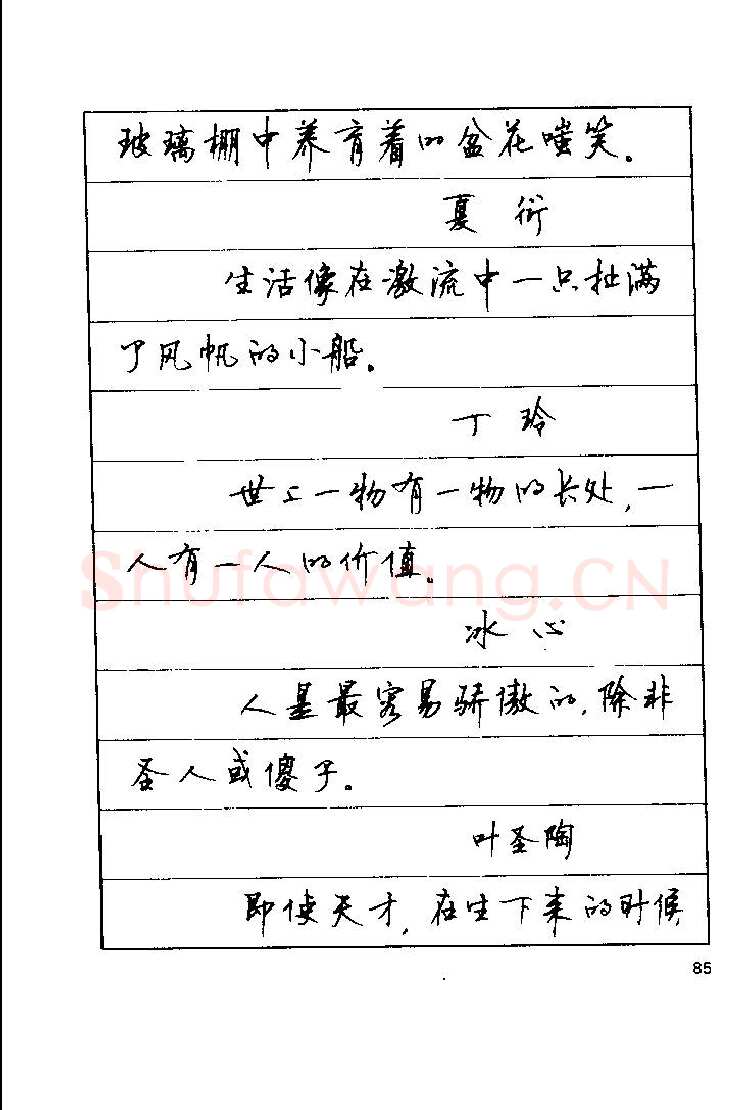 玻璃棚中养育着的盆花嗤笑。
夏衍
生活像在激流中一只扯满
了风帆的小船。
丁玲
世上一物有一物的长处，一
人有一人的价值。
Shufawang.CN
冰心
人是最容易骄傲的，除非
圣人或傻子。
叶圣陶
即使天才，在生下来的时候
85